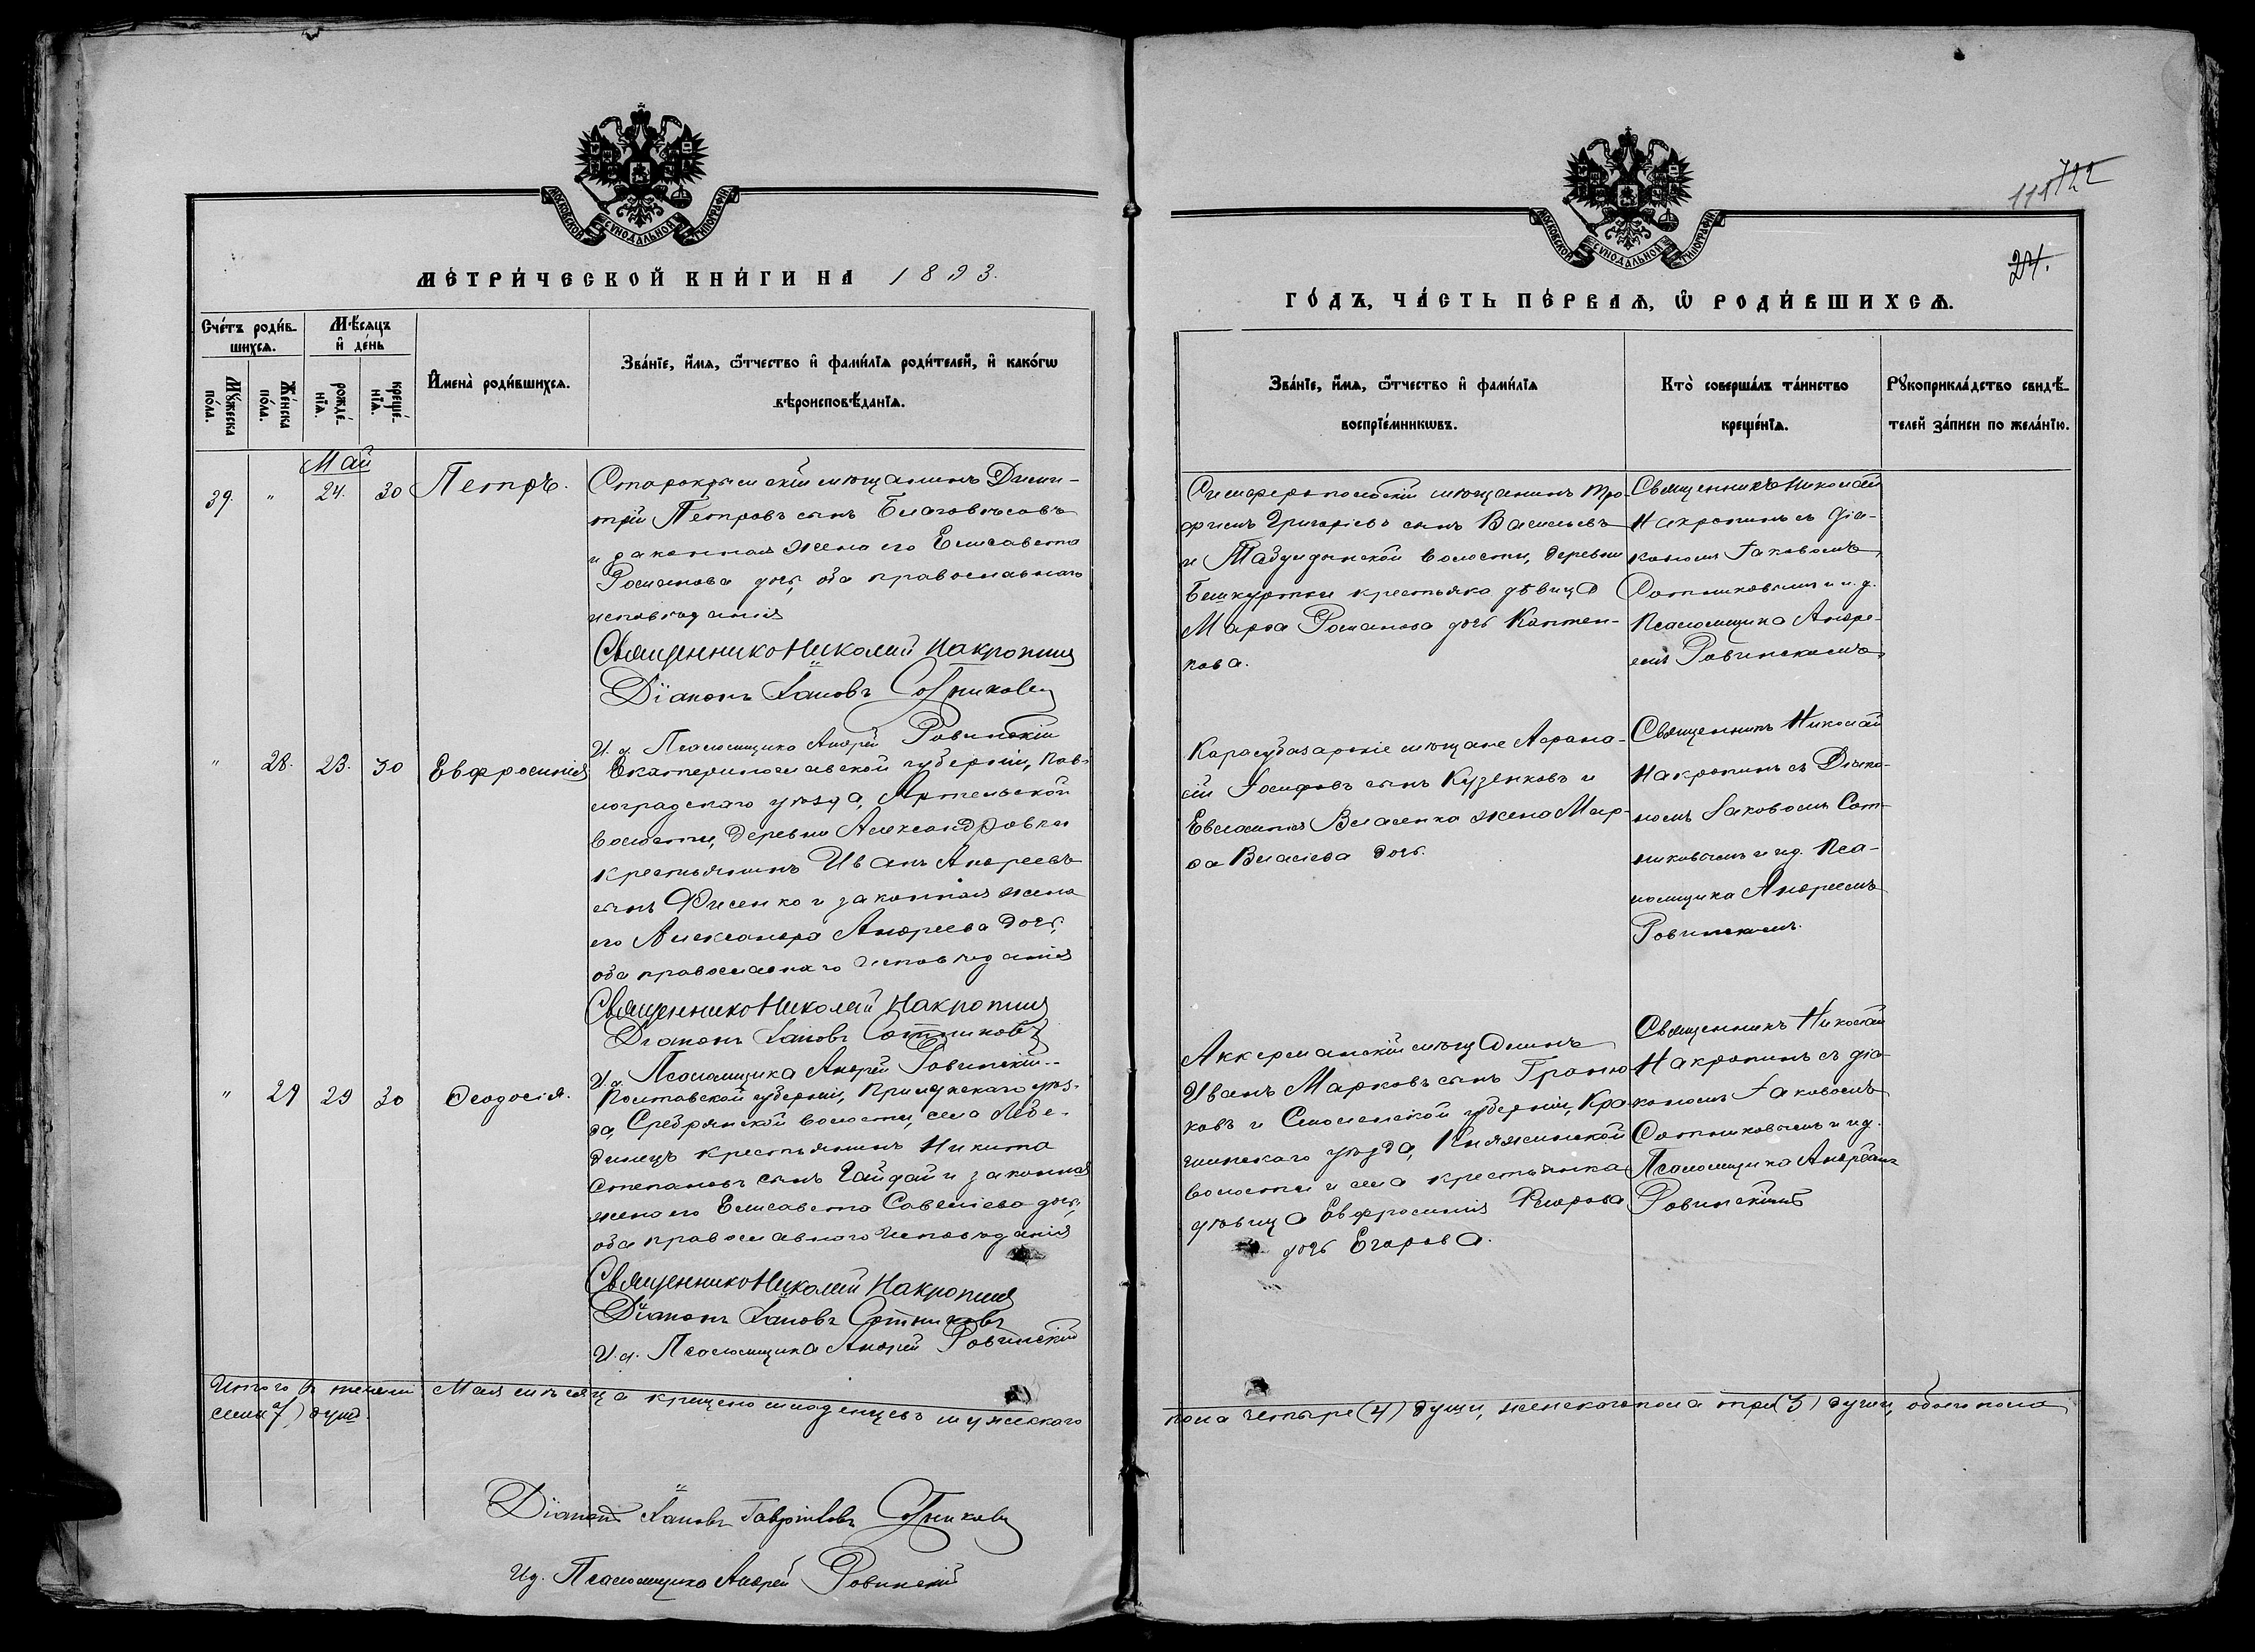 МОСКОВСКОЙ СѴНОДАЛЬНОЙ ТИПОГРАФІИ
МЕТРИ́ЧЕСКОЙ КНИ́ГИ НА 1893.
Сче́тъ роди́в-
шихсѧ.
Мѣ́сѧцъ
и҆ де́нь
Мꙋ́жеска
по́ла.
Же́нска
по́ла.
рожде́-
нїѧ.
креще́-
нїѧ.
И҆мена̀ роди́вшихсѧ.
Зва́нїе, и҆́мѧ, ѻ҆́тчество и҆ фами́лїѧ роди́телей, и҆ како́гѡ
вѣроисповѣ́данїѧ.
Май
39. " 24. 30 Петръ.
Старокрымскій мѣщанинъ Дими-
трій Петровъ сынъ Благовѣсовъ
и законная жена его Елисавета
Романова дочь, оба православнаго
исповѣданія
Священникъ Николай Накропинъ
Діаконъ Іаковъ Сотниковъ
И. д. Псаломщика Андрей Ровинскій
" 28. 23. 30 Евфросинія
Екатеринославской губерніи, Пав-
лоградскаго уѣзда, Артельской
волости, деревни Александровки
крестьянинъ Иванъ Андреевъ
сынъ Фисенко и законная жена
его Александра Андреева дочь,
оба православнаго исповѣданія
Священникъ Николай Накропинъ
Діаконъ Іаковъ Сотниковъ
И. д. Псаломщика Андрей Ровинскій
" 29 29 30 Ѳеодосія.
Полтавской губерніи, Прилукскаго уѣз-
да, Сребрянской волости, села Лебе-
динецъ крестьянинъ Никита
Степановъ сынъ Гайдай и законная
жена его Елисавета Савелiева дочь,
оба православнаго исповѣданія
Священникъ Николай Накропинъ
Діаконъ Іаковъ Сотниковъ
И. д. Псаломщика Андрей Ровинскій
Итого въ теченіи Мая мѣсяца крещено младенцевъ мужескаго
семь (7) душъ.
Діаконъ Іаковъ Гавріиловъ Сотниковъ
И.д. Псаломщика Андрей Ровинскій
122
24.
МОСКОВСКОЙ СѴНОДАЛЬНОЙ ТИПОГРАФІИ
ГО́ДЪ, ЧА́СТЬ ПЕ́РВАѦ, Ѡ҆ РОДИ́ВШИХСѦ.
Зва́нїе, и҆́мѧ, ѻ҆́тчество и҆ фами́лїѧ
воспрїе́мникѡвъ.
Кто̀ соверша́лъ та́инство
креще́нїѧ.
Рꙋкоприкла́дство свидѣ́-
телей за́писи по жела́нїю.
Симферопольскій мѣщанинъ Тро-
фимъ Григоріевъ сынъ Васильевъ
и Табулдынской волости, деревни
Бешкуртки крестьянка дѣвица
Марѳа Романова дочь Коптен-
кова.
Священникъ Николай
Накропинъ съ діа-
кономъ Іаковомъ
Сотниковымъ и и. д.
Псаломщика Андре-
емъ Ровинскимъ.
Карасубазарскіе мѣщане Аѳана-
сій Іосифовъ сынъ Кузенковъ и
Власенка жена Мар-
ѳа Власіева дочь.
Священникъ Николай
Накропинъ съ Діако-
номъ Іаковомъ Сот-
никовымъ и и.д. Пса-
ломщика Андреемъ
Ровинскимъ.
Аккерманскій мѣщанинъ
Иванъ Марковъ сынъ Граню-
ковъ и Смоленской губерніи, Кра-
шинскаго уѣзда, Княжинской
волости и села крестьянка
дѣвица Евфросинія Флорова
дочь Егорова.
Священникъ Николай
Накропинъ съ діа-
кономъ Іаковомъ
Сотниковымъ и и.д.
Псаломщика Андреемъ
Ровинскимъ
пола четыре (4) души, женскаго пола три (3) души, обоего пола